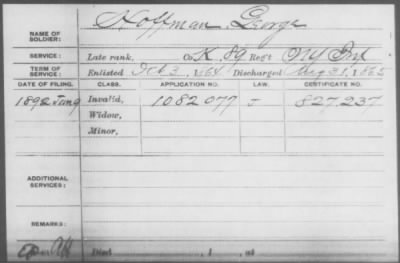 Hoffman, George
NAME OF
SOLDIER:
SERVICE: Late rank, Co. K, 89 Reg't NY Inf
TERM OF
SERVICE: Enlisted Oct 3, 1864 Discharged Aug 31, 1865
DATE OF FILING. CLASS. APPLICATION NO. LAW. CERTIFICATE NO.
1892 Invalid, 1082077 J 827.237
Widow,
Minor,
ADDITIONAL
SERVICES:
REMARKS:
Died , 1 , at